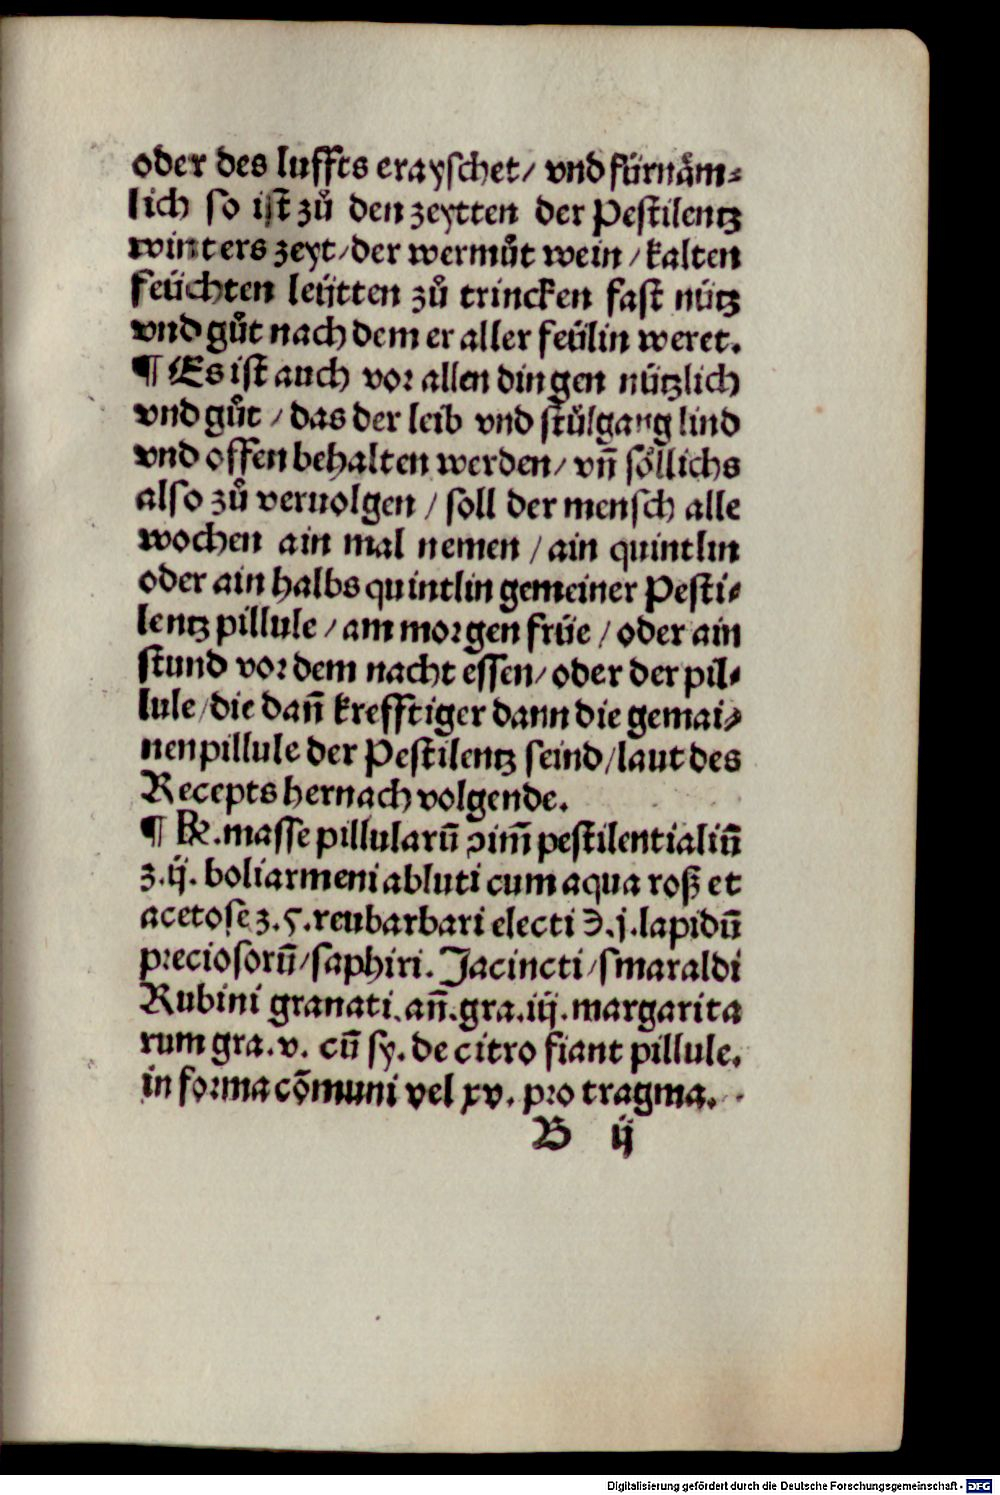 oder des luffts erayschet/ vnd fürnåm⸗
lich so ist zů den zeytten der Pestilentz
winters zeyt/der wermůt wein /kalten
feüchten leütten zů trincken fast nütz
vnd gůt nach dem er aller feülin weret.
¶ Es ist auch vor allen dingen nützlich
vnd gůt / das der leib vnd stůlgang lind
vnd offen behalten werden/ vñ söllichs
also zů veruolgen / soll der mensch alle
wochen ain mal nemen / ain quintlin
oder ain halbs quintlin gemeiner Pesti⸗
lentz pillule /am morgen früe / oder ain
stund vor dem nacht essen/ oder der pil⸗
lule/die dañ krefftiger dann die gemai⸗
nen pillule der Pestilentz seind/laut des
Recepts hernach volgende.
¶ ℞.masse pillularū ɔim̄ pestilentialiū
ʒ.ij. boliarmeni abluti cum aqua roß et
acetose ʒ.ꝭ.reubarbari electi ℈.j.lapidū
preciosorū/saphiri. Jacincti/smaraldi
Rubini granati.añ.gra.iij.margarita
rum gra.v. cū sy. de citro fiant pillule.
in forma cōmuni vel xv. pro tragma.
B ij
Digitalisierung gefördert durch die Deutsche Forschungsgemeinschaft - DFG